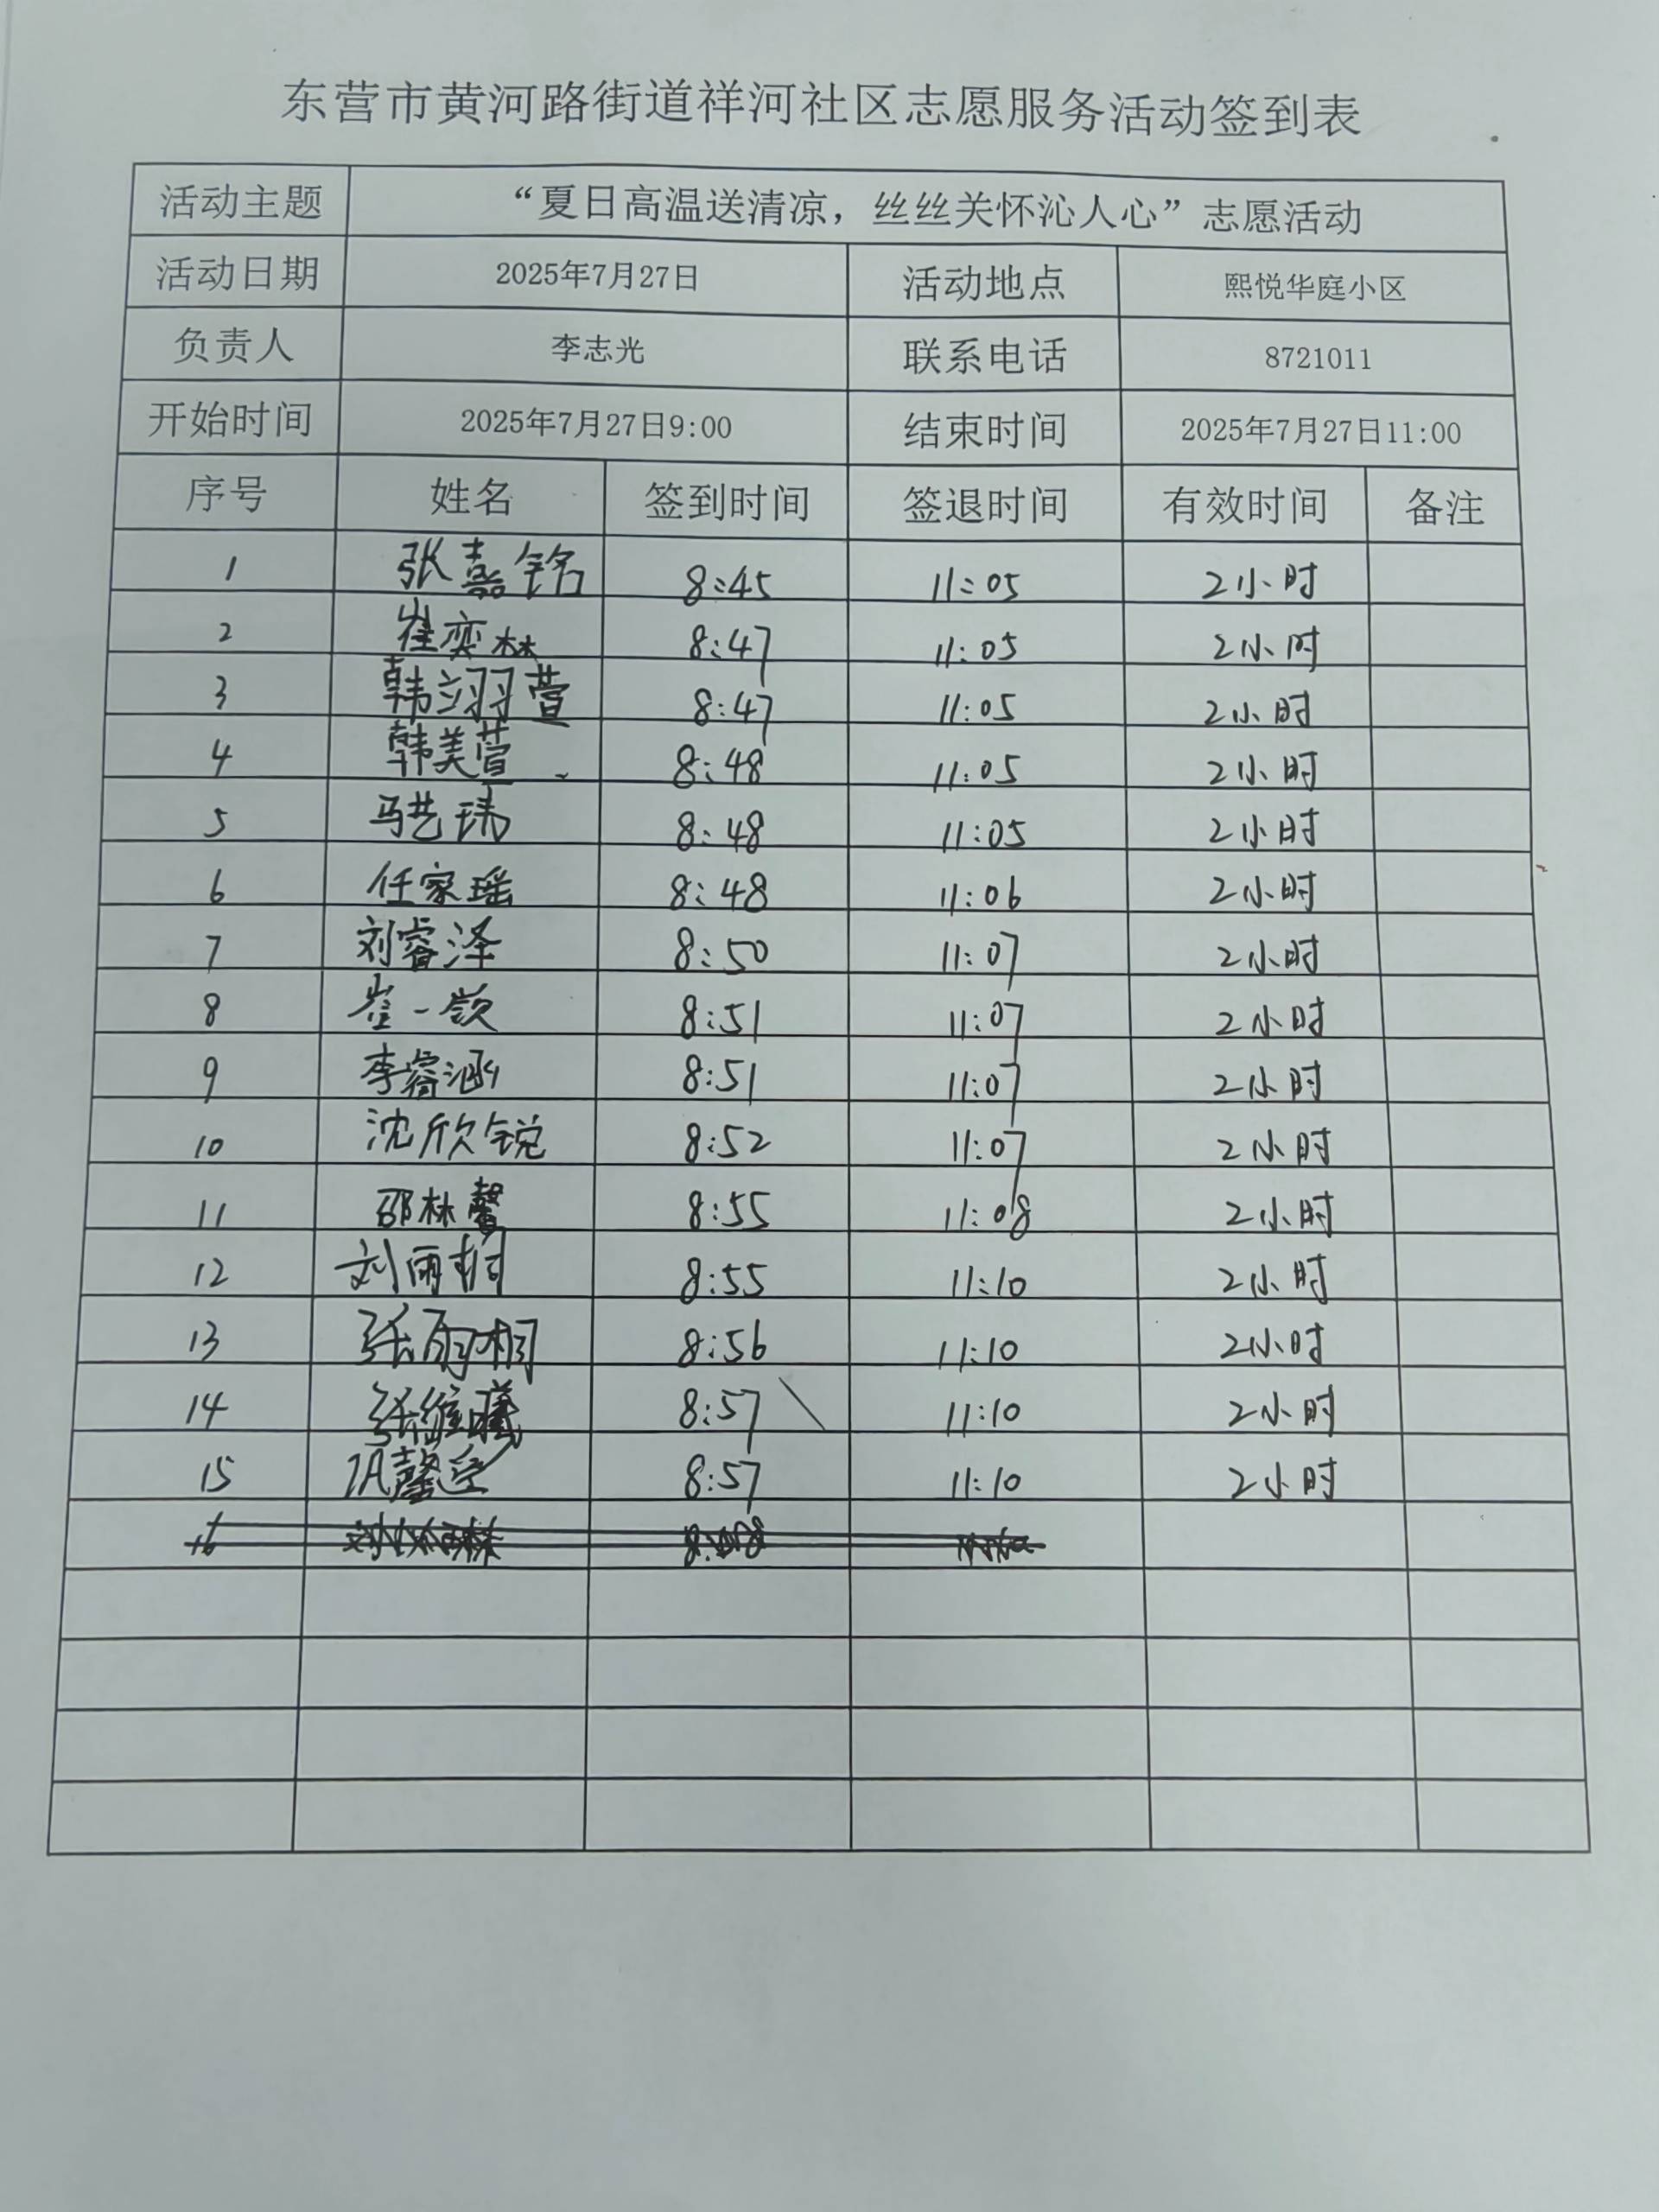 东营市黄河路街道祥河社区志愿服务活动签到表
活动主题 “夏日高温送清凉，丝丝关怀沁人心”志愿活动
活动日期 2025年7月27日 活动地点 熙悦华庭小区
负责人 李志光 联系电话 8721011
开始时间 2025年7月27日9:00 结束时间 2025年7月27日11:00
序号 姓名 签到时间 签退时间 有效时间 备注
1 张嘉铭 8:45 11:05 2小时
2 崔奕林 8:47 11:05 2小时
3 韩翊萱 8:47 11:05 2小时
4 韩美萱 8:48 11:05 2小时
5 马艺玮 8:48 11:05 2小时
6 任家瑶 8:48 11:06 2小时
7 刘睿泽 8:50 11:07 2小时
8 崔一 8:51 11:07 2小时
9 李睿涵 8:51 11:07 2小时
10 沈欣锐 8:52 11:07 2小时
11 邵林馨 8:55 11:08 2小时
12 刘雨桐 8:55 11:10 2小时
13 张雨桐 8:56 11:10 2小时
14 张维曦 8:57 11:10 2小时
15 8:57 11:10 2小时
16